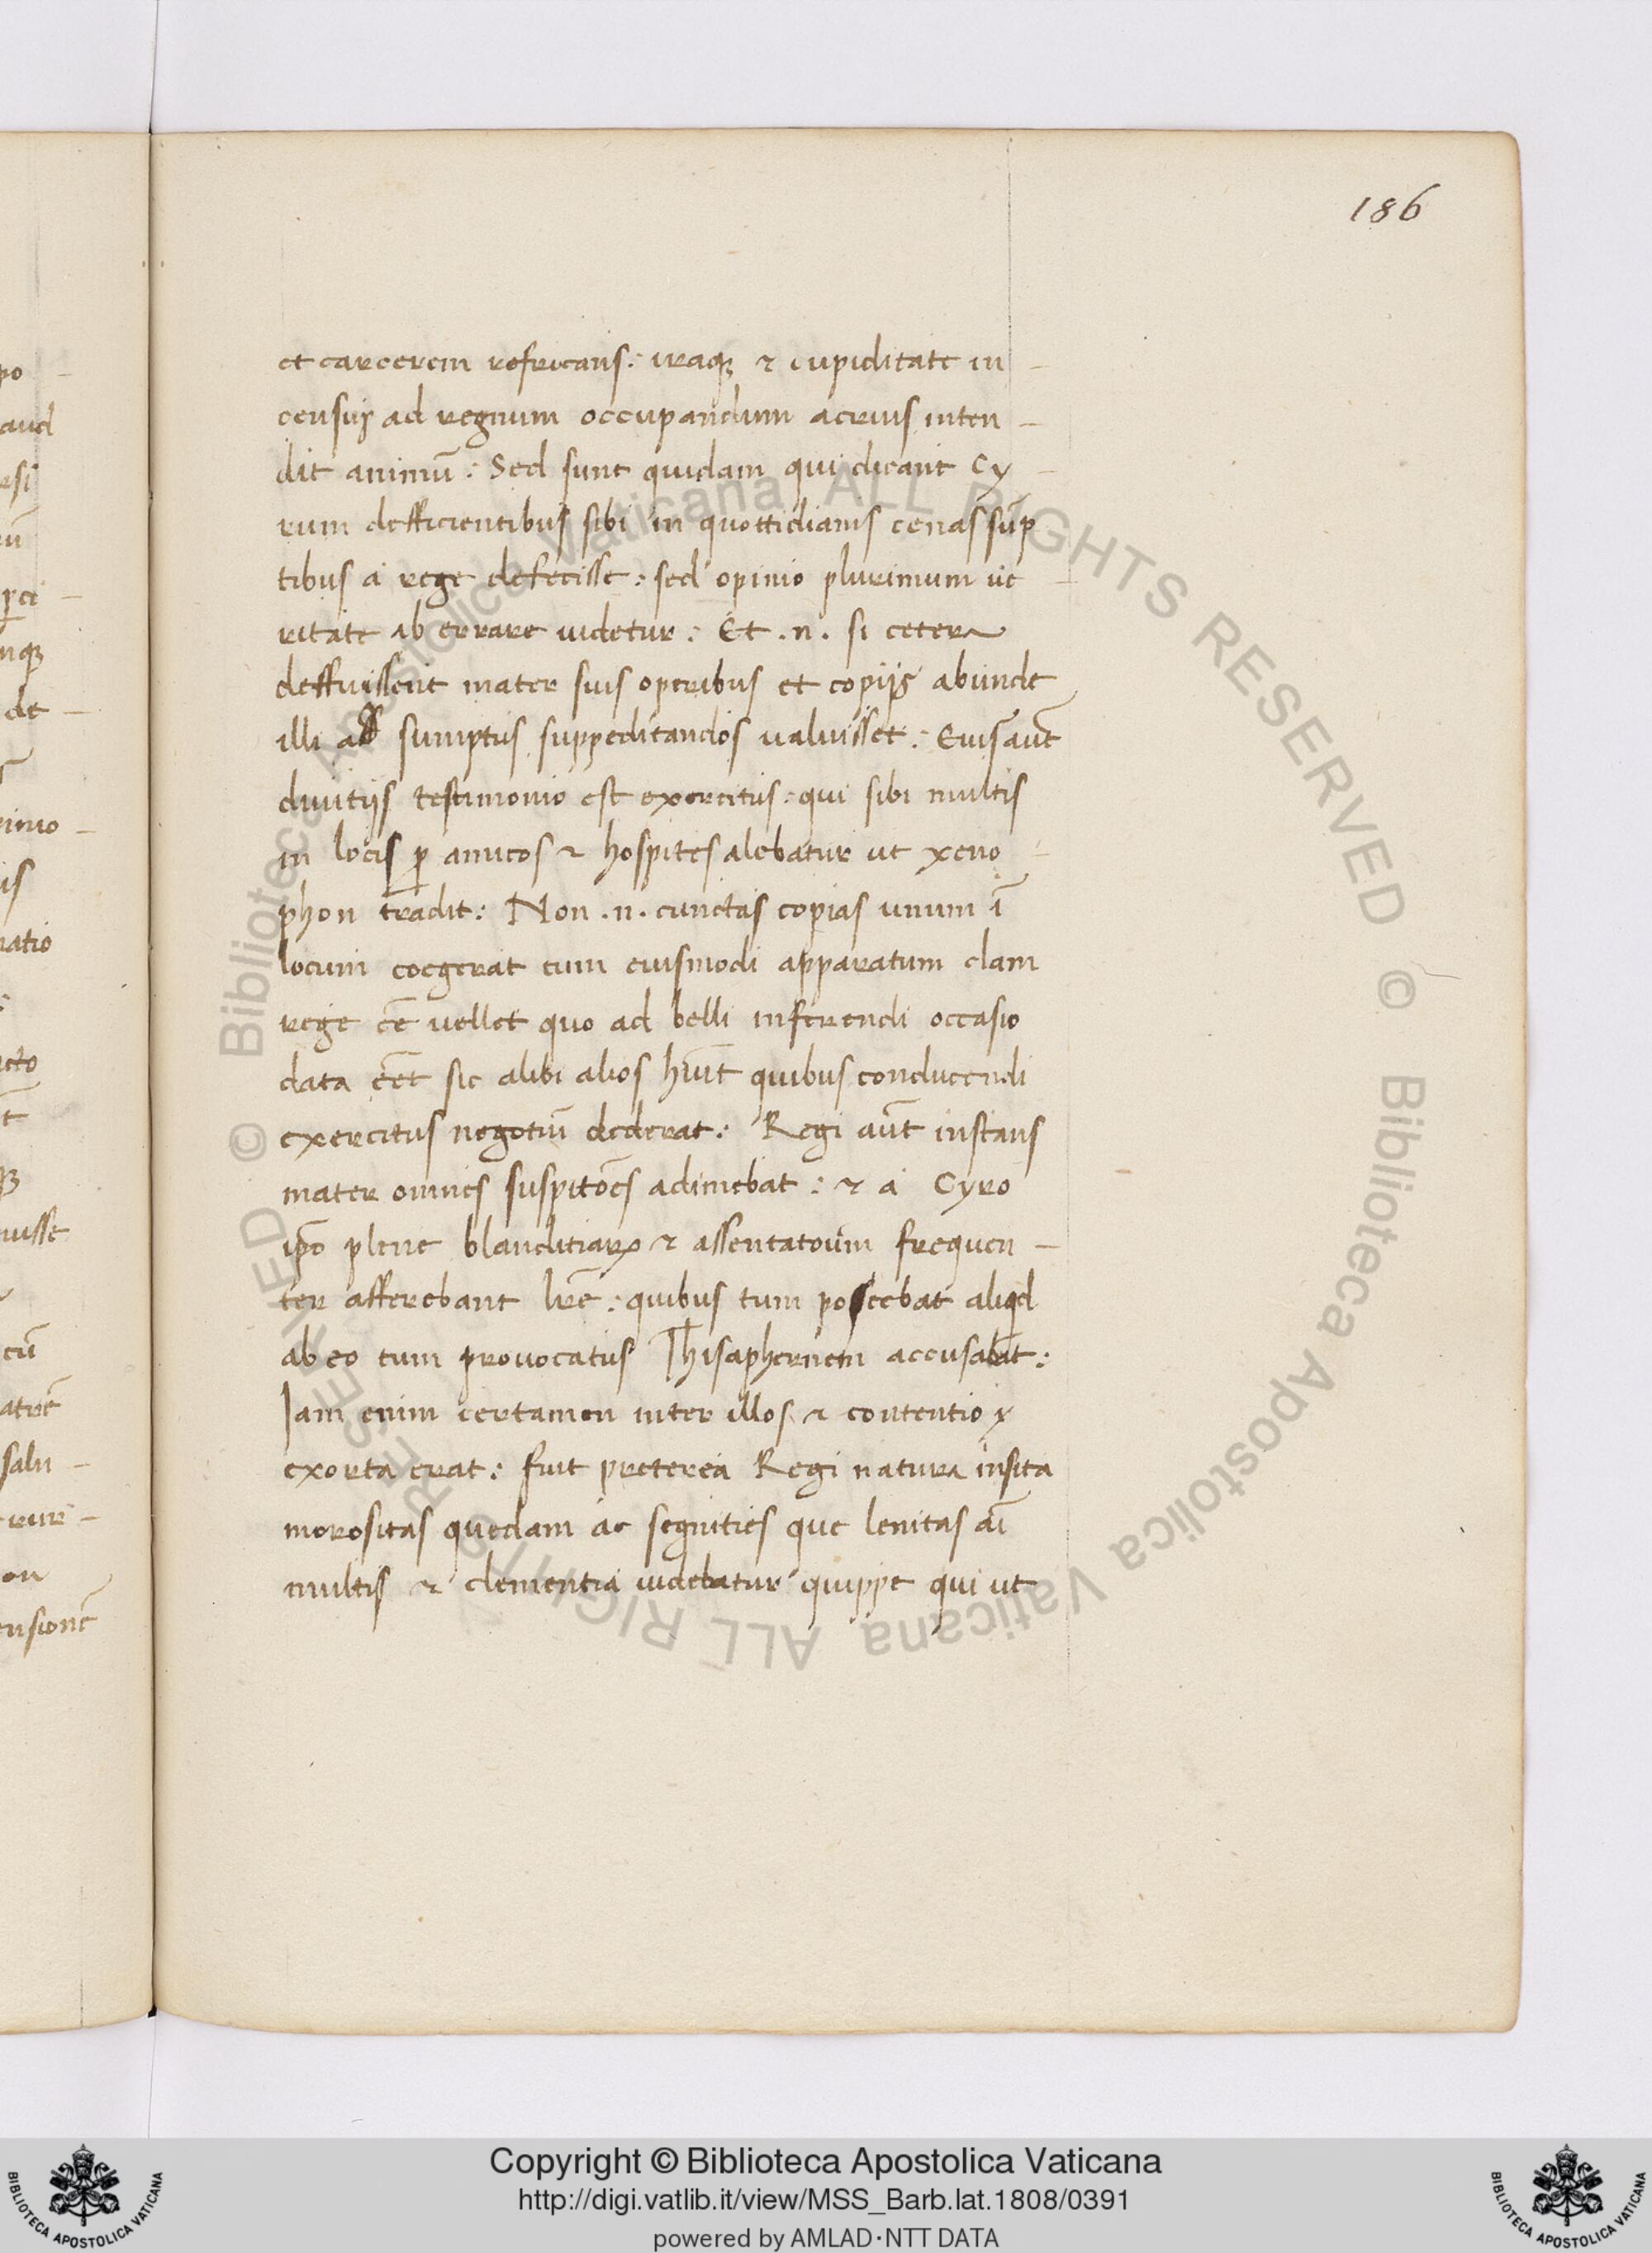 186
et carcerem refricans: iraq; & cupiditate in
census ad regnum occupandum acrius inten
dit animū: Sed sunt quidam qui dicant Cy
rum defficientibus sibi in quottidianis cenas sūp
tibus a rege defecisse: sed opinio plurimum ue
ritate ab errare uidetur: Et .n. si cetera
deffuissent mater suis operibus et copijs abunde
illi ad sumptus suppeditandos ualuisset: Euis aut̄
diuitijs testimonio est exercitus: qui sibi multis
in locis ꝑ amicos & hospites alebatur ut xeno
phon tradit: Non .n. cunctas copias unum ī
locum coegerat cum euismodi apparatum clam
rege eē uellet quo ad belli inferendi occasio
data eēt sic alibi alios hūit quibus conducendi
exercitus negotiū dederat: Regi aūt instans
mater omnes suspitōes adimebat: & a Cyro
ipō plene blanditiaꝝ & assentatoūm frequen
ter afferebant lr̄e: quibus tum poscebat aliqd
ab eo tum prouocatus Thisaphernem accusabat:
Iam enim certamen inter illos & contentio
exorta erat: fuit preterea Regi natura insita
morositas quedam ac segnities que lenitas aī
multis & clementia uidebatur quippe qui ut
© Biblioteca Apostolica Vaticana ALL RIGHTS RESERVED © Biblioteca Apostolica Vaticana ALL RIGHTS RESERVED
Copyright © Biblioteca Apostolica Vaticana
http://digi.vatlib.it/view/MSS_Barb.lat.1808/0391
powered by AMLAD·NTT DATA
BIBLIOTECA APOSTOLICA VATICANA
BIBLIOTECA APOSTOLICA VATICANA